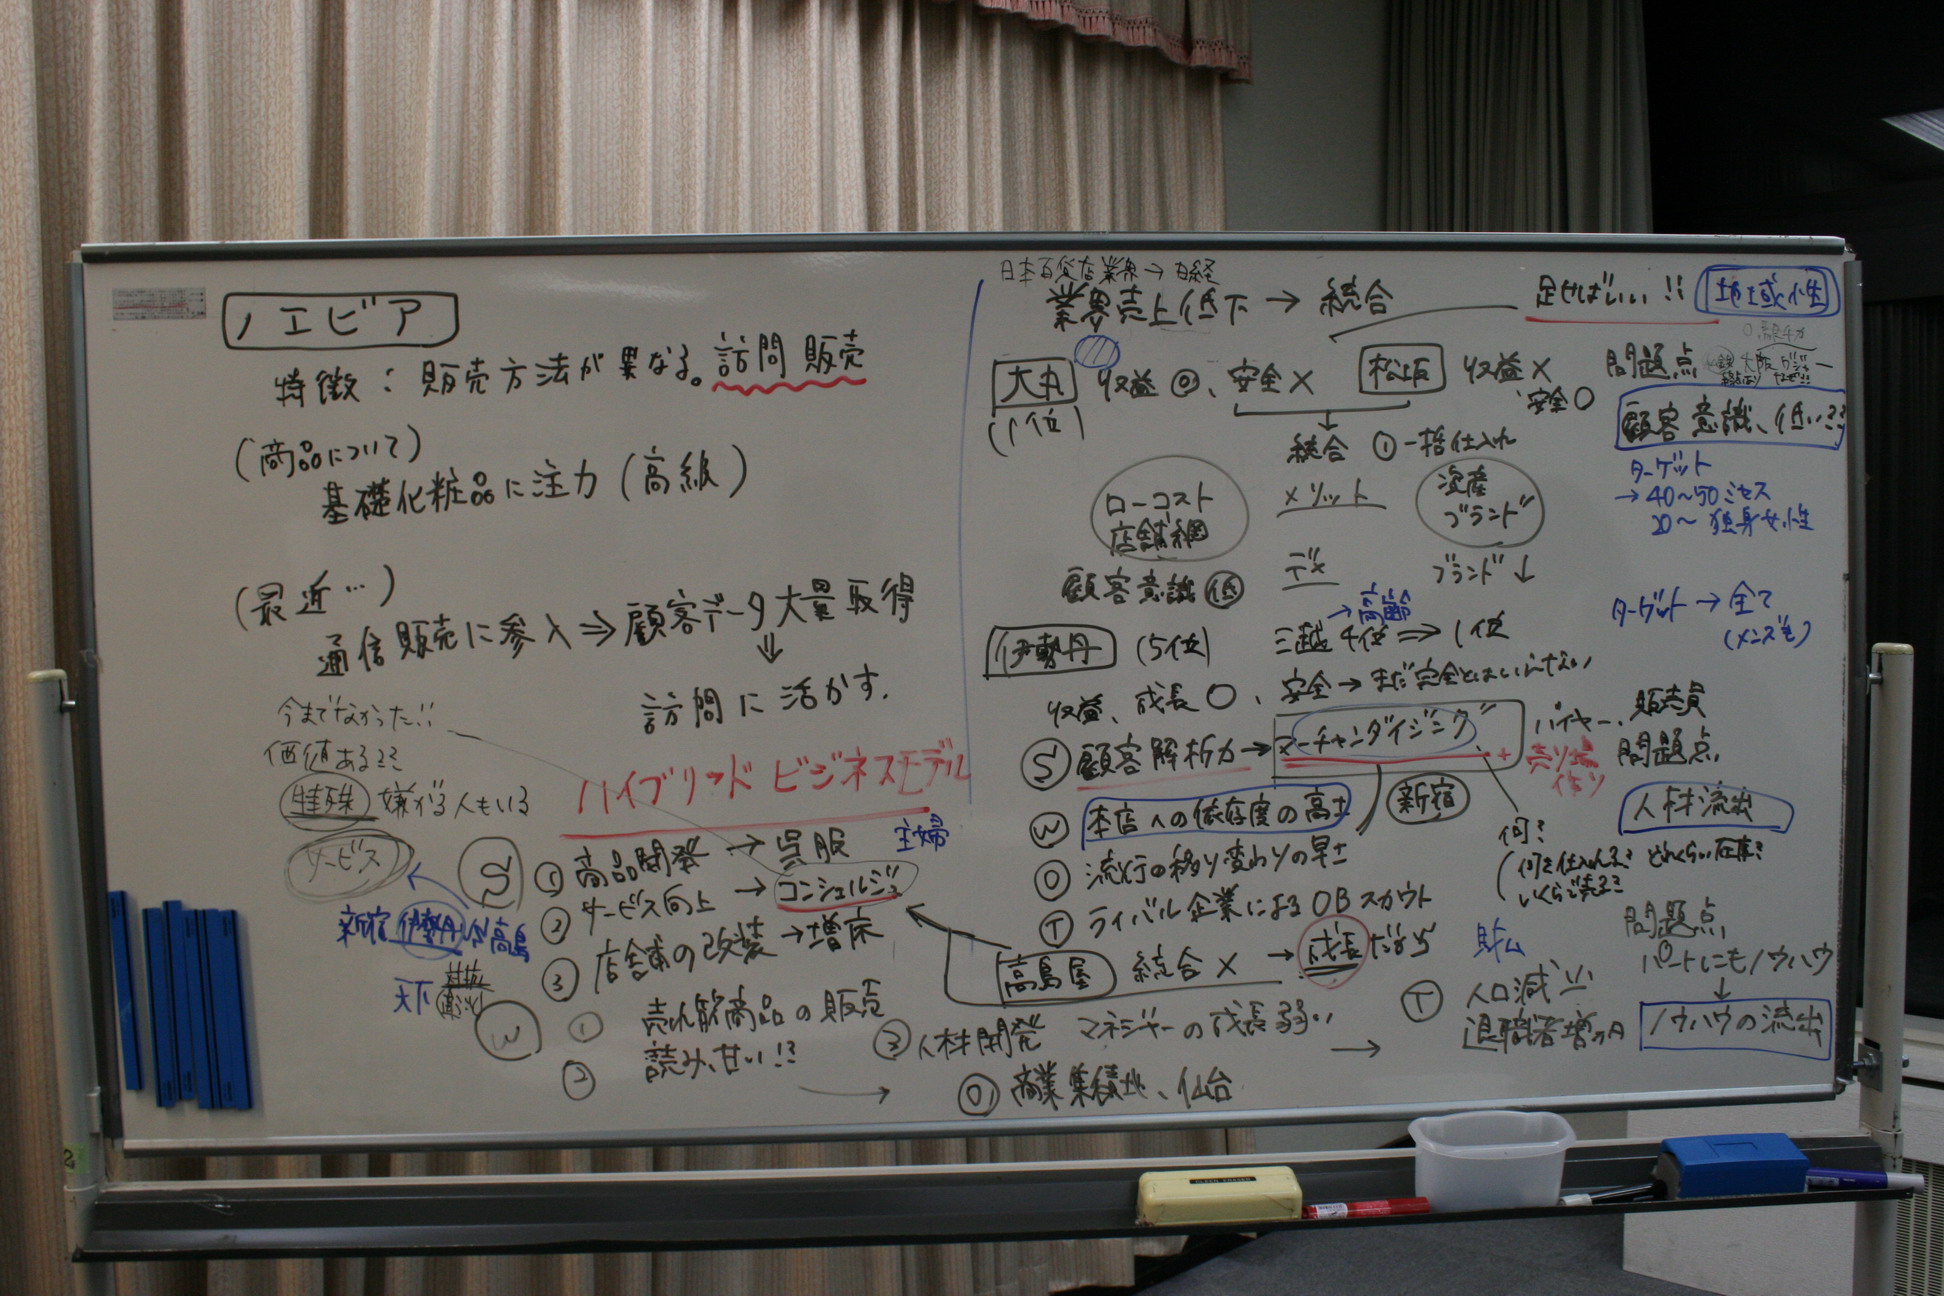 ノエビア
特徴:販売方法が異なる。訪問販売
(商品について)
基礎化粧品に注力(高級)
(最近…)
通信販売に参入⇒顧客データ大量取得
⇓
訪問に活かす.
今までなかった!!
価値ある??
特殊 嫌がる人もいる
サービス
ハイブリッドビジネスモデル
S ① 商品開発 → 呉服 主婦
② サービス向上 → コンシェルジュ
③ 店舗の改装→増床
新宿 伊勢丹 VS 高島
天下
W ① 売れ筋商品の販売
読み、甘い!?
②
③ 人材開発 マネジャーの成長弱い
日本百貨店業界→日経
業界売上低下 → 統合
足せばいい!! 地域性
大丸 収益◎、安全× 松坂 収益×
安全○
(1位)
問題点
大阪
顧客意識、低い??
統合 ① 一括仕入れ
メリット
ローコスト
店舗網
資産
ブランド
デメ ブランド↓
顧客意識 低
ターゲット
→40~50ミセス
20~独身女性
→高齢
伊勢丹 (5位) 三越4位⇒1位
ターゲット→全て
(メンズも)
収益、成長○、安全→まだ完全とはいえない
S 顧客解析力→マーチャンダイジング バイヤー、販売員
+ 売り場
作り
問題点
人材流出
W 本店への依存度の高さ 新宿
O 流行の移り変わりの早さ
T ライバル企業によるOBスカウト
何?
(何を仕入れる? どれくらい在庫?
いくらで売る?
高島屋 統合× → 成長だけ
問題点
パートにもノウハウ
↓
ノウハウの流出
T 人口減少
退職者増加
O 商業集積地、仙台